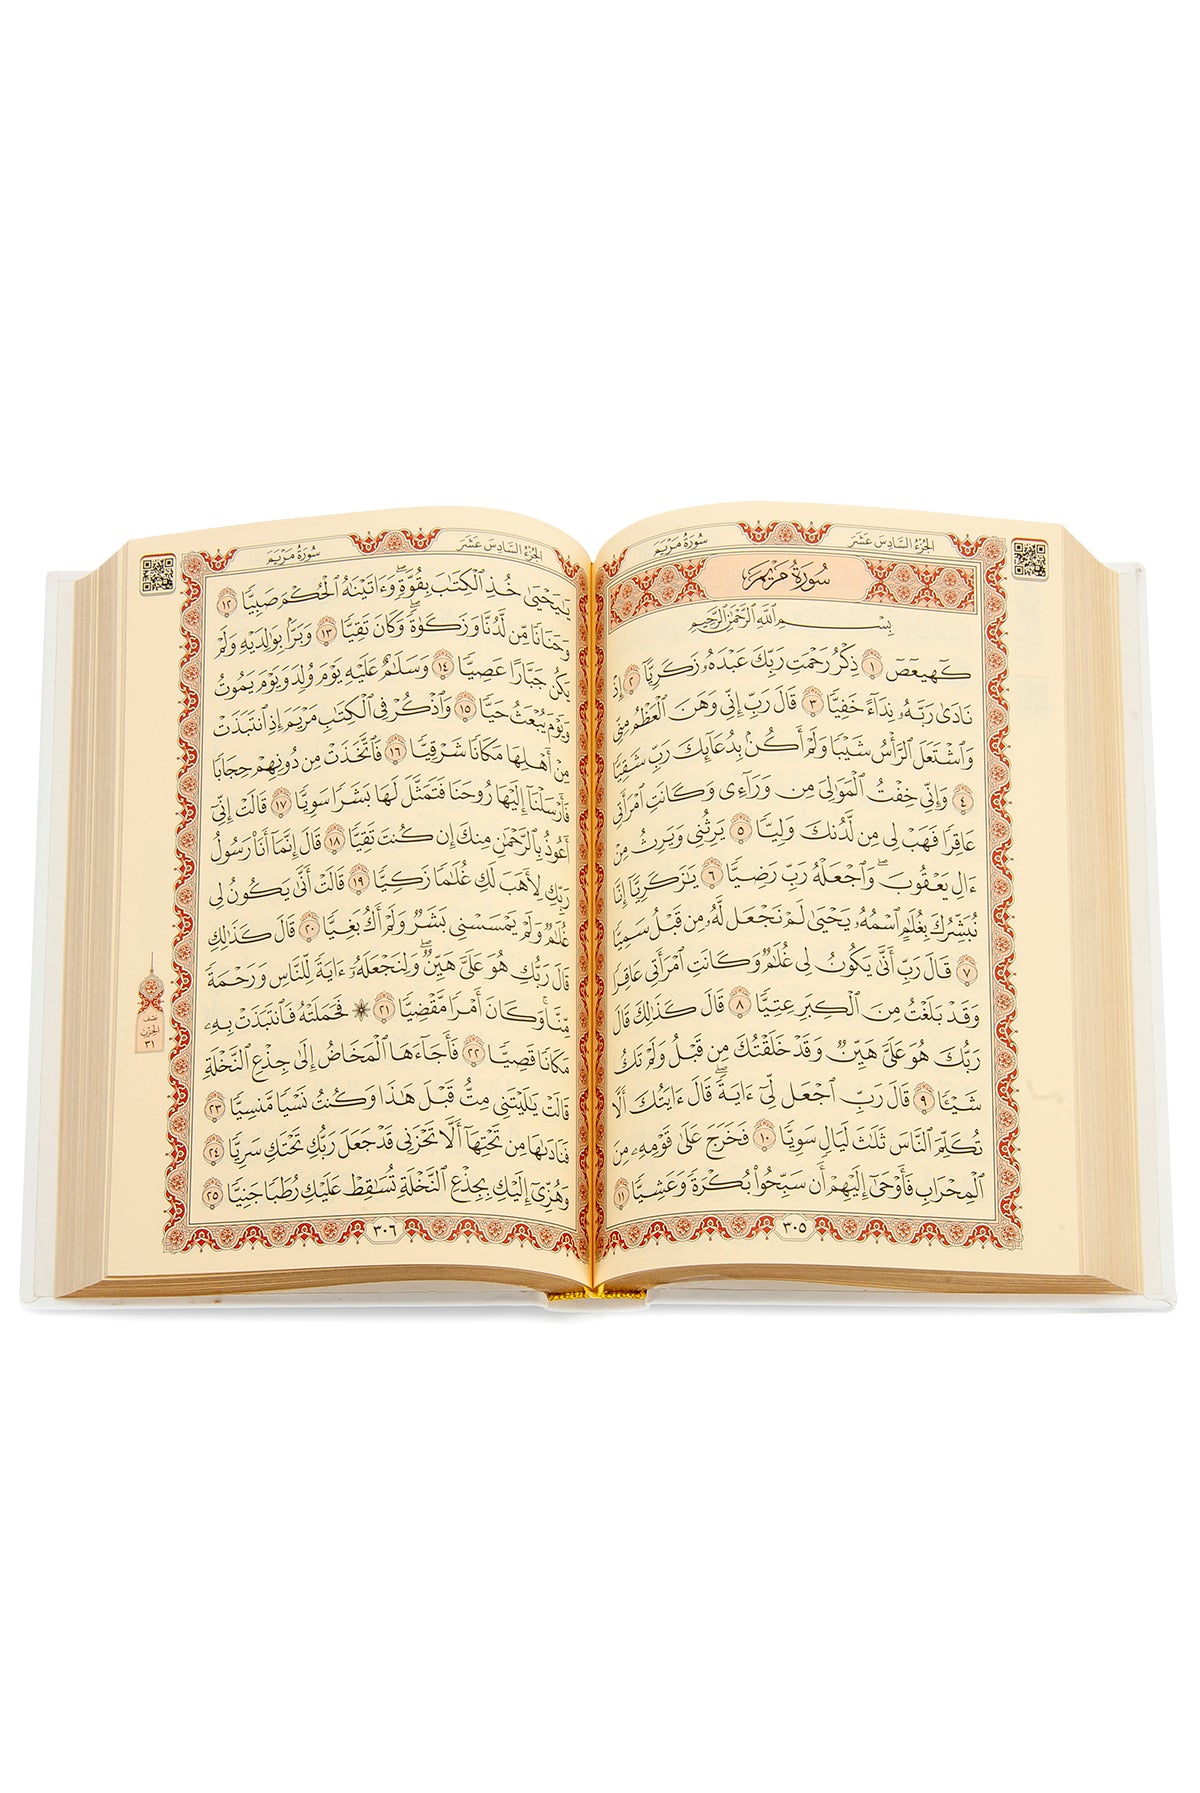 الجزء السادس عشر
سورة مريم
سُورَةُ مَرْيَمَ
بِسْمِ ٱللَّهِ ٱلرَّحْمَٰنِ ٱلرَّحِيمِ
كٓهيعٓصٓ ١ ذِكْرُ رَحْمَتِ رَبِّكَ عَبْدَهُۥ زَكَرِيَّآ ٢ إِذْ
نَادَىٰ رَبَّهُۥ نِدَآءً خَفِيًّا ٣ قَالَ رَبِّ إِنِّى وَهَنَ ٱلْعَظْمُ مِنِّى
وَٱشْتَعَلَ ٱلرَّأْسُ شَيْبًا وَلَمْ أَكُنۢ بِدُعَآئِكَ رَبِّ شَقِيًّا
٤ وَإِنِّى خِفْتُ ٱلْمَوَٰلِىَ مِن وَرَآءِى وَكَانَتِ ٱمْرَأَتِى
عَاقِرًا فَهَبْ لِى مِن لَّدُنكَ وَلِيًّا ٥ يَرِثُنِى وَيَرِثُ مِنْ
ءَالِ يَعْقُوبَ ۖ وَٱجْعَلْهُ رَبِّ رَضِيًّا ٦ يَٰزَكَرِيَّآ إِنَّا
نُبَشِّرُكَ بِغُلَٰمٍ ٱسْمُهُۥ يَحْيَىٰ لَمْ نَجْعَل لَّهُۥ مِن قَبْلُ سَمِيًّا
٧ قَالَ رَبِّ أَنَّىٰ يَكُونُ لِى غُلَٰمٌ وَكَانَتِ ٱمْرَأَتِى عَاقِرًا
وَقَدْ بَلَغْتُ مِنَ ٱلْكِبَرِ عِتِيًّا ٨ قَالَ كَذَٰلِكَ قَالَ
رَبُّكَ هُوَ عَلَىَّ هَيِّنٌ وَقَدْ خَلَقْتُكَ مِن قَبْلُ وَلَمْ تَكُ
شَيْـًٔا ٩ قَالَ رَبِّ ٱجْعَل لِّىٓ ءَايَةً ۚ قَالَ ءَايَتُكَ أَلَّا
تُكَلِّمَ ٱلنَّاسَ ثَلَٰثَ لَيَالٍ سَوِيًّا ١٠ فَخَرَجَ عَلَىٰ قَوْمِهِۦ مِنَ
ٱلْمِحْرَابِ فَأَوْحَىٰٓ إِلَيْهِمْ أَن سَبِّحُوا۟ بُكْرَةً وَعَشِيًّا ١١
٣٠٥
الجزء السادس عشر
سورة مريم
يَٰيَحْيَىٰ خُذِ ٱلْكِتَٰبَ بِقُوَّةٍ ۖ وَءَاتَيْنَٰهُ ٱلْحُكْمَ صَبِيًّا ١٢
وَحَنَانًا مِّن لَّدُنَّا وَزَكَوٰةً ۖ وَكَانَ تَقِيًّا ١٣ وَبَرًّۢا بِوَٰلِدَيْهِ وَلَمْ
يَكُن جَبَّارًا عَصِيًّا ١٤ وَسَلَٰمٌ عَلَيْهِ يَوْمَ وُلِدَ وَيَوْمَ يَمُوتُ
وَيَوْمَ يُبْعَثُ حَيًّا ١٥ وَٱذْكُرْ فِى ٱلْكِتَٰبِ مَرْيَمَ إِذِ ٱنتَبَذَتْ
مِنْ أَهْلِهَا مَكَانًا شَرْقِيًّا ١٦ فَٱتَّخَذَتْ مِن دُونِهِمْ حِجَابًا
فَأَرْسَلْنَآ إِلَيْهَا رُوحَنَا فَتَمَثَّلَ لَهَا بَشَرًا سَوِيًّا ١٧ قَالَتْ إِنِّىٓ
أَعُوذُ بِٱلرَّحْمَٰنِ مِنكَ إِن كُنتَ تَقِيًّا ١٨ قَالَ إِنَّمَآ أَنَا۠ رَسُولُ
رَبِّكِ لِأَهَبَ لَكِ غُلَٰمًا زَكِيًّا ١٩ قَالَتْ أَنَّىٰ يَكُونُ لِى
غُلَٰمٌ وَلَمْ يَمْسَسْنِى بَشَرٌ وَلَمْ أَكُ بَغِيًّا ٢٠ قَالَ كَذَٰلِكِ
قَالَ رَبُّكِ هُوَ عَلَىَّ هَيِّنٌ ۖ وَلِنَجْعَلَهُۥٓ ءَايَةً لِّلنَّاسِ وَرَحْمَةً
مِّنَّا ۚ وَكَانَ أَمْرًا مَّقْضِيًّا ٢١ فَحَمَلَتْهُ فَٱنتَبَذَتْ بِهِۦ
مَكَانًا قَصِيًّا ٢٢ فَأَجَآءَهَا ٱلْمَخَاضُ إِلَىٰ جِذْعِ ٱلنَّخْلَةِ
قَالَتْ يَٰلَيْتَنِى مِتُّ قَبْلَ هَٰذَا وَكُنتُ نَسْيًا مَّنسِيًّا ٢٣
فَنَادَىٰهَا مِن تَحْتِهَآ أَلَّا تَحْزَنِى قَدْ جَعَلَ رَبُّكِ تَحْتَكِ سَرِيًّا ٢٤
وَهُزِّىٓ إِلَيْكِ بِجِذْعِ ٱلنَّخْلَةِ تُسَٰقِطْ عَلَيْكِ رُطَبًا جَنِيًّا ٢٥
٣٠٦
نصف
الحزب
٣١